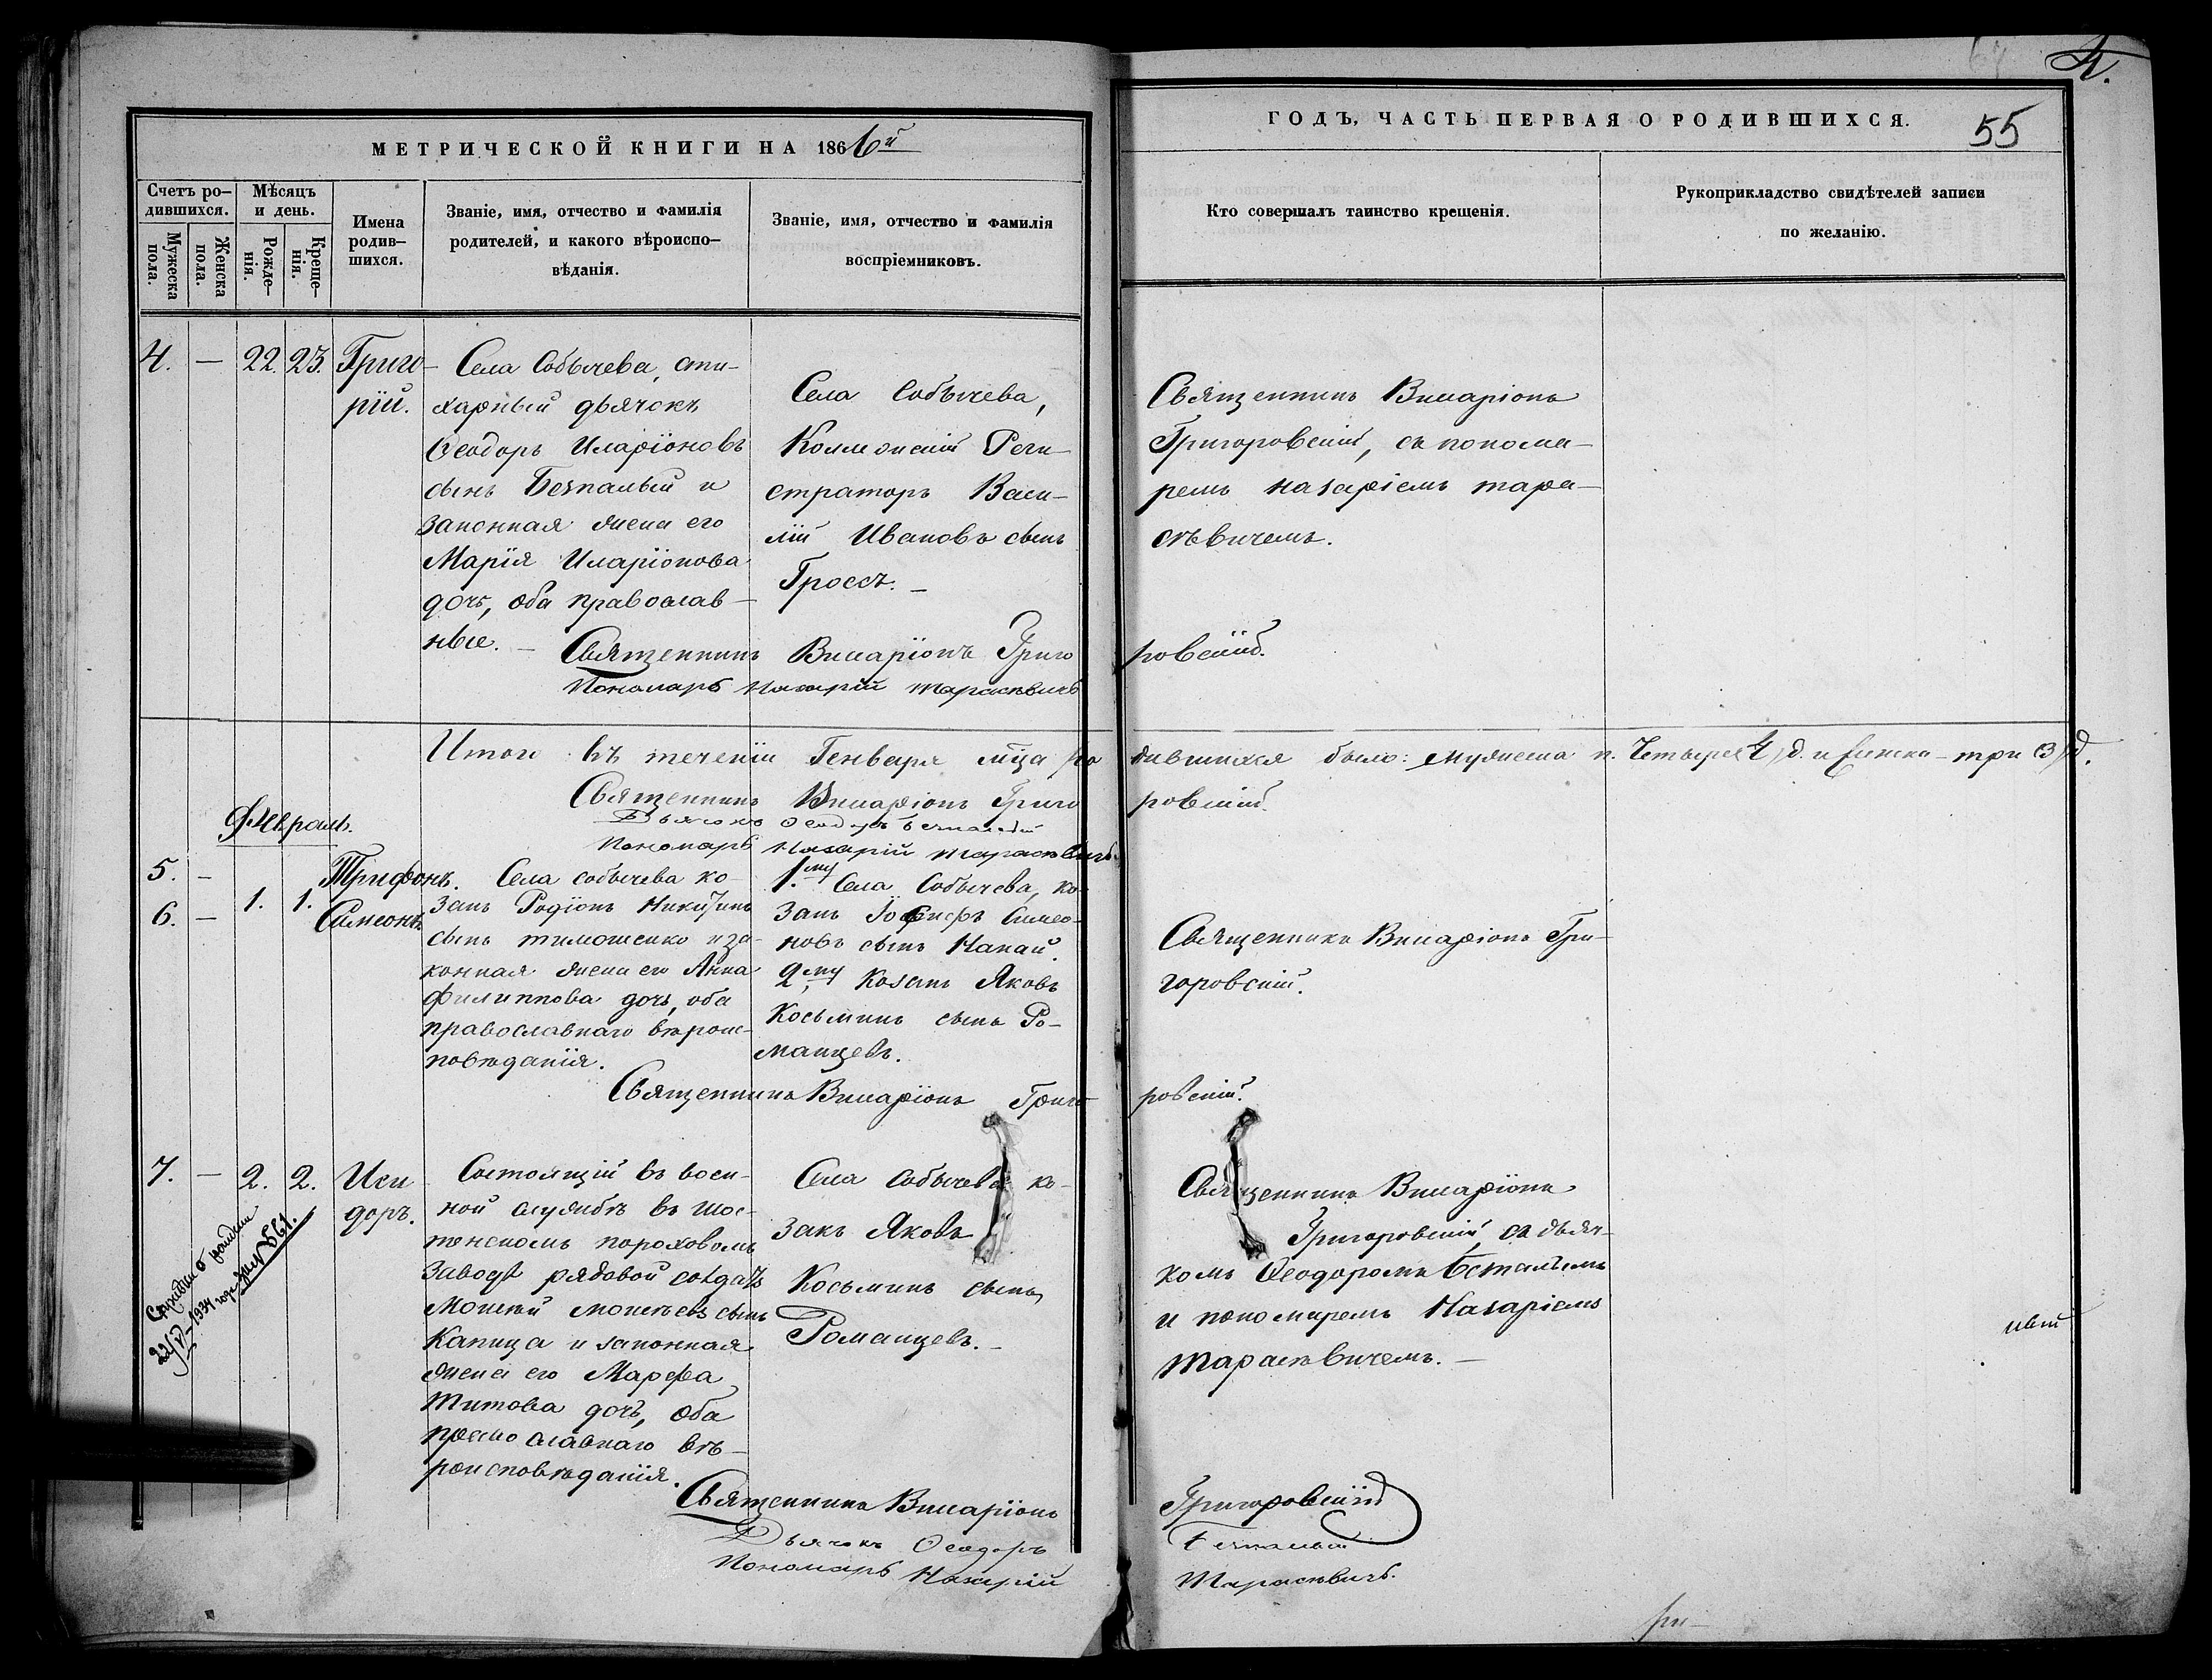 4.
МЕТРИЧЕСКОЙ КНИГИ НА 1866й
ГОДЪ, ЧАСТЬ ПЕРВАЯ О РОДИВШИХСЯ.
55
Счетъ ро-
дившихся.
Мужеска
пола.
Женска
пола.
Мѣсяцъ
и день.
Рожде-
нія.
Креще-
нія.
Имена
родив-
шихся.
Званіе, имя, отчество и фамилія
родителей, и какого вѣроиспо-
вѣданія.
Званіе, имя, отчество и фамилія
воспріемниковъ.
Кто совершалъ таинство крещенія.
Рукоприкладство свидѣтелей записи
по желанію.
4. — 22. 23.
Григо-
рій.
Села Собычева, сти-
харный дьячокъ
Ѳеодоръ Иларіоновъ
сынъ Безпалый и
законная жена его
Марія Иларіонова
дочь, оба православ-
ные. —
Села Собычева,
Коллежскій Реги-
страторъ Васи-
лій Ивановъ сынъ
Гроссъ. —
Священникъ Виларіонъ
Григоровскій, съ понома-
ремъ Назаріемъ Тара-
сѣвичемъ.
Священникъ Виларіонъ Григоровскій.
Пономарь Назарій Тарасѣвичъ
Итого въ теченіи Генваря мца родившихся было: мужеска п. Четыре (4) д. и женска - три (3) д.
Священникъ Виларіонъ Григоровскій.
Дьячокъ Ѳеодоръ Безпалый
Пономарь Назарій Тарасѣвичъ.
Февраль.
5. —
6. —
1. 1.
Трифонъ.
Симеонъ.
Села Собычева ко-
закъ Родіонъ Никитинъ
сынъ Тимошенко и за-
конная жена его Анна
Филиппова дочь, оба
православнаго вѣроис-
повѣданія.
1.му Села Собычева, ко-
закъ Іосифъ Симео-
новъ сынъ Папай.
2.му Козакъ Яковъ
Косьминъ сынъ Ро-
манцевъ.
Священникъ Виларіонъ Гри-
горовскій.
Священникъ Виларіонъ Григоровскій.
7. — 2. 2.
Иси-
доръ.
Состоящій въ воен-
ной службѣ въ Шос-
тенскомъ пороховомъ
заводѣ рядовой солдатъ
Моисей Моисѣевъ сынъ
Капица и законная
жена его Марфа
Титова дочь, оба
православнаго вѣ-
роисповѣданія.
Села Собычева ко-
закъ Яковъ
Косьминъ сынъ
Романцевъ. —
Священникъ Виларіонъ
Григоровскій, съ дьяч-
комъ Ѳеодоромъ Безпалымъ
и пономаремъ Назаріемъ
Тарасѣвичемъ. —
Священникъ Виларіонъ Григоровскій
Дьячокъ Ѳеодоръ Безпалый
Пономарь Назарій Тарасѣвичъ.
22/V-1934 года